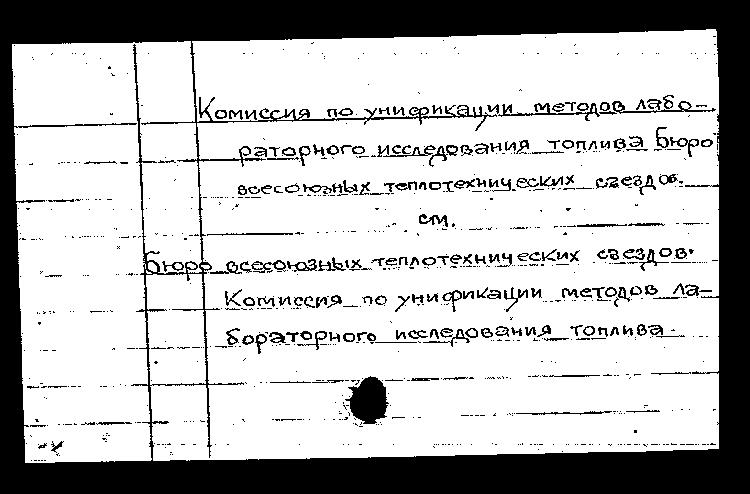 Комиссия по унификации методов лабо-
раторного исследования топлива Бюро
всесоюзных теплотехнических съездов.
см.
Бюро всесоюзных теплотехнических съездов.
Комиссия по унификации методов ла-
бораторного исследования топлива.